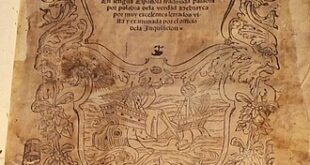 En lengua Española traduzida palabra
por palabra dela verdad Hebrayca
por muy excelentes letrados vi
sta y examinada por el officio
dela Inquisicion